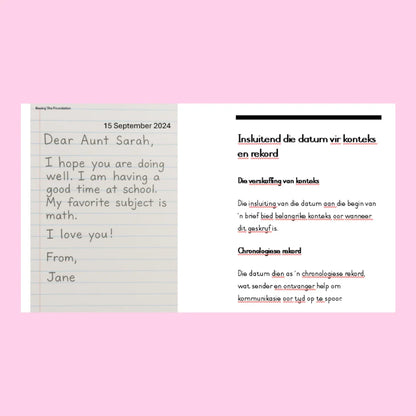 15 September 2024
Dear Aunt Sarah,
I hope you are doing
well. I am having a
good time at school.
My favorite subject is
math.
I love you!
From,
Jane
Insluitend die datum vir konteks
en rekord
Die verskaffing van konteks
Die insluiting van die datum aan die begin van
'n brief bied belangrike konteks oor wanneer
dit geskryf is.
Chronologiese rekord
Die datum dien as 'n chronologiese rekord,
wat sender en ontvanger help om
kommunikasie oor tyd op te spoor.